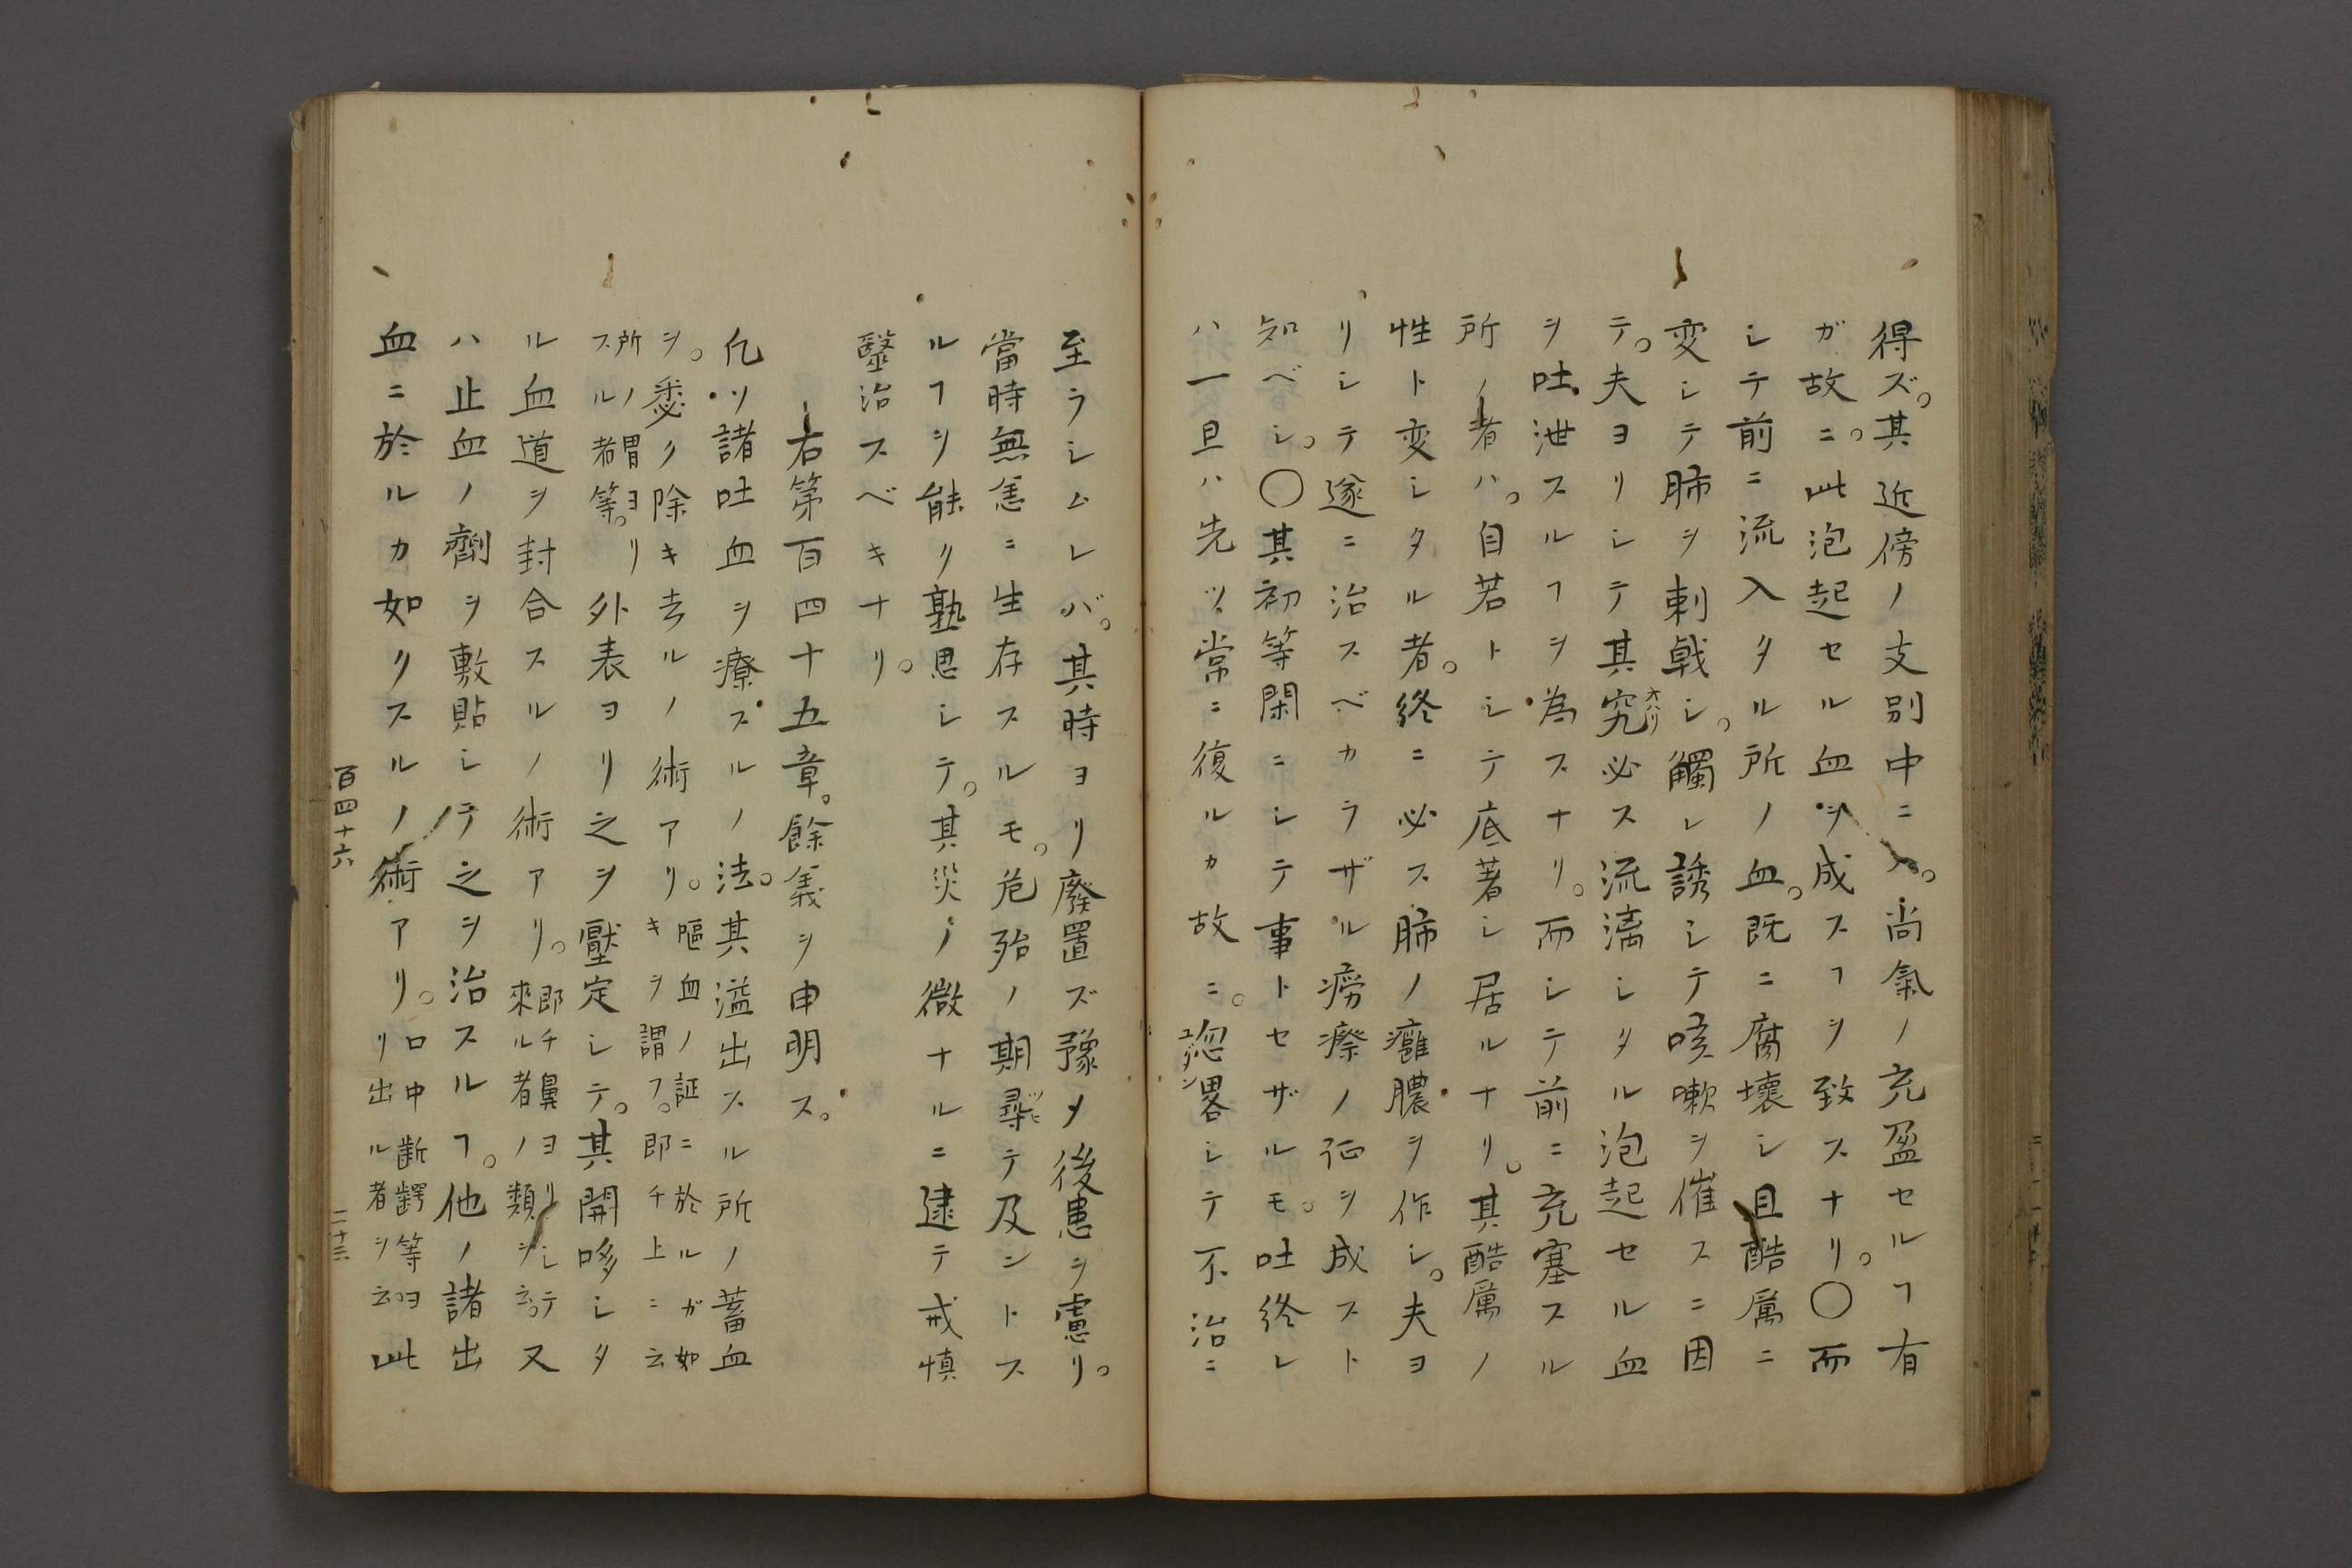 得ズ。其近傍ノ支別中ニ入。尚氣ノ充盈セルヿ有
ガ故ニ。此泡起セル血ヲ成スヿヲ致スナリ。〇而
シテ前ニ流入タル所ノ血。既ニ腐壊シ且酷厲ニ
変シテ肺ヲ刺戟シ。觸レ誘シテ咳嗽ヲ催スニ因
テ。夫ヨリシテ其究オハリ必ス流漓シタル泡起セル血
ヲ吐泄スルヿヲ為スナリ。而シテ前ニ充塞スル
所ノ者ハ。自若トシテ底著シ居ルナリ。其酷厲ノ
性ト変シタル者。終ニ必ス肺ノ癰膿ヲ作シ。夫ヨ
リシテ遂ニ治スベカラザル癆瘵ノ征ヲ成スト
知ベシ。〇其初等閑ニシテ事トセザルモ。吐終レ
ハ一旦ハ先ツ常ニ復ルカ故ニ。忽畧ユダンシテ不治ニ
至ラシムレバ。其時ヨリ廢置ズ豫メ後患ヲ慮リ。
當時無恙ニ生存スルモ。危殆ノ期尋テ及ントス
ルヿヲ能ク熟思シテ。其災ノ微ナルニ逮テ戒慎
毉治スベキナリ。
右第百四十五章。餘義ヲ申明ス。
凢ソ諸吐血ヲ療スルノ法。其溢出スル所ノ蓄血
ヲ。悉ク除キ去ルノ術アリ。嘔血ノ証ニ於ルガ如キヲ謂フ。即チ上ニ云
所ノ胃ヨリスル者等。外表ヨリ之ヲ壓定シテ。其開哆シタ
ル血道ヲ封合スルノ術アリ。即チ鼻ヨリシテ來ル者ノ類ヲ云。又
ハ止血ノ劑ヲ敷貼シテ之ヲ治スルヿ。他ノ諸出
血ニ於ルカ如クスルノ術アリ。口中齗齶等ヨリ出ル者ヲ云。此
百四十六
二十三